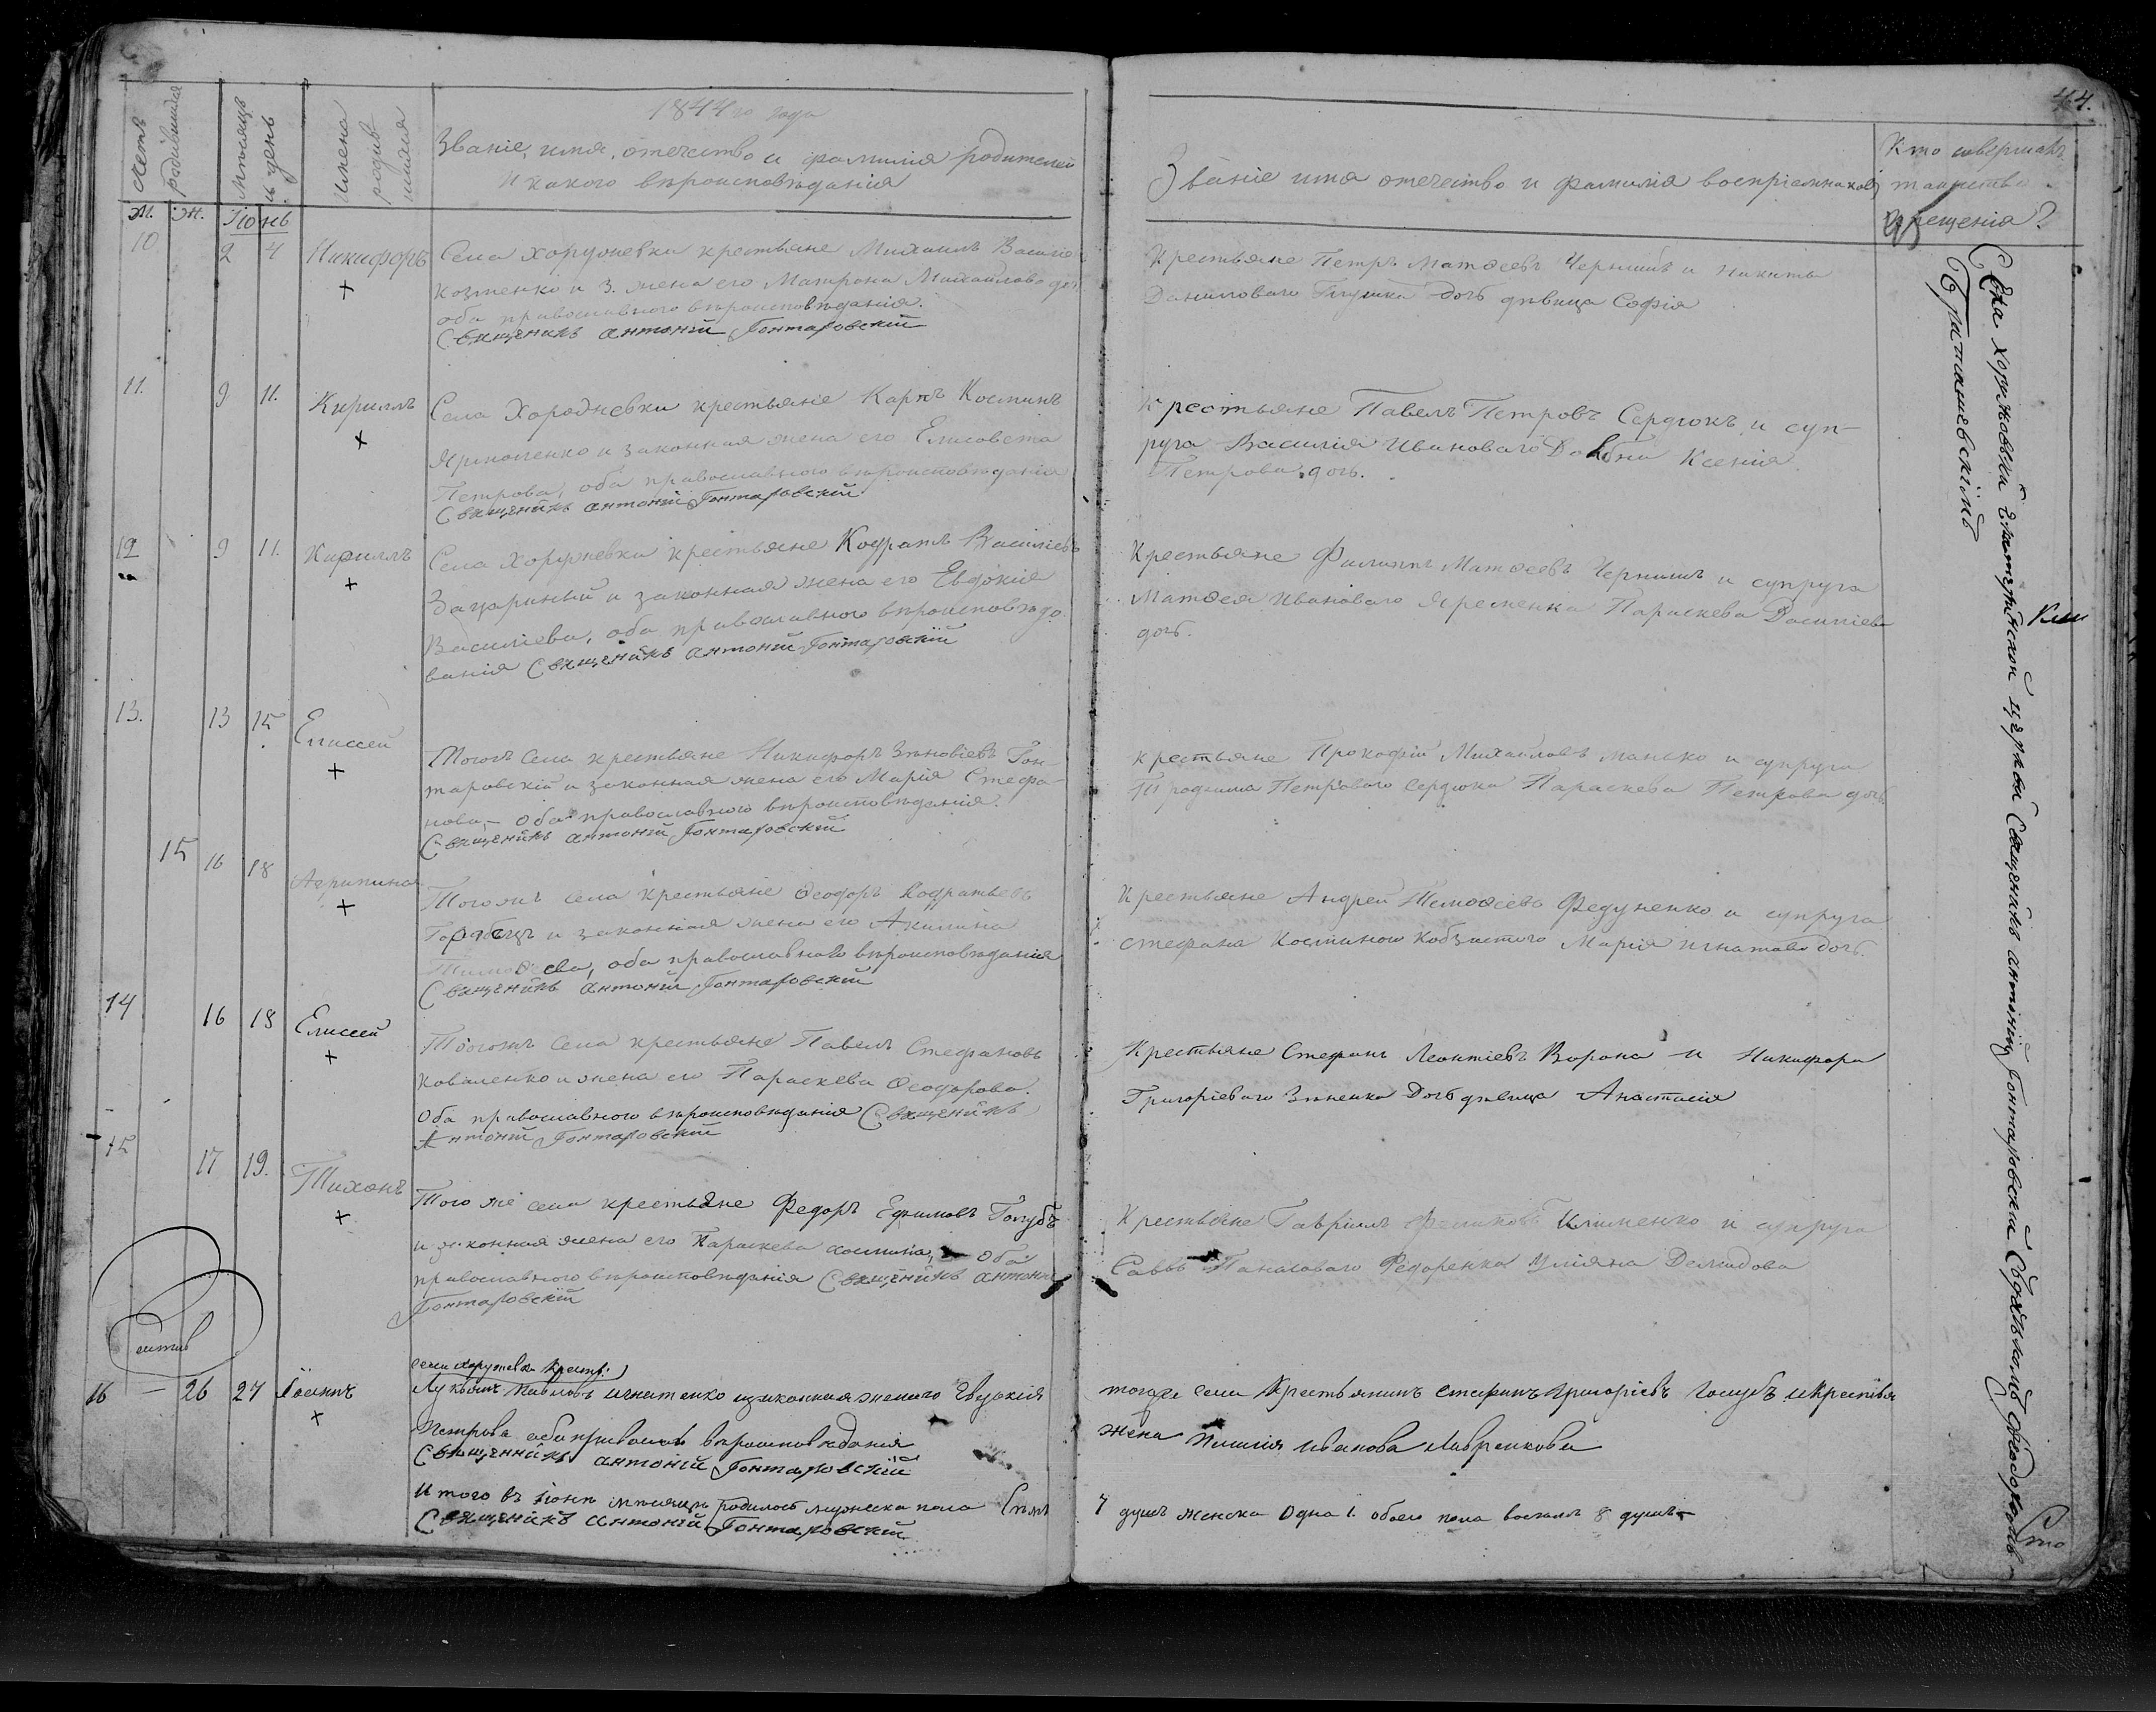 44.
Счетъ родившихся
Мѣсяцъ и день
Имена родив шихся
1844го года
Званіе, имя, отечество и фамилія родителей
И какого вѣроисповѣданія
Званіе имя отечество и фамилія воспріемниковъ
Кто совершалъ
таинство
Крещенія?
М. Ж. Іюнь
10 2 4 Никифоръ
Села Хоружевки крестьяне Михаилъ Василіевъ
Козменко и з. жена его Матрона Михайлова доч
оба православного вѣроисповѣданія.
Священикъ антоній Гонтаровскій
Крестьяне Петръ Матѳеевъ Чернишъ и Никиты
Даниловаго Глушка дочь дѣвица Софія
11. 9 11. Кириллъ
Села Хоружевки крестьяне Карпъ Косминъ
Ярмоленко и законная жена его Елисовета
Петрова, оба православного вѣроисповѣданія
Священикъ антоній Гонтаровскій
Крестьяне Павелъ Петровъ Сердюкъ и суп-
руга Василія Иванового Довбни Ксенія
Петрова дочь.
12 9 11. Кириллъ
Села Хоружевки крестьяне Кодратъ Василіевъ
Зацаринный и законная жена его Евдокія
Василіева, оба православного вѣроисповѣдо
ванія Священикъ антоній Гонтаровскій
Крестьяне Филиппъ Матѳеевъ Чернишъ и супруга
Матѳея Ивановаго Яременка Параскева Василіева
дочь.
13. 13 15 Елиссей
Тогожъ Села крестьяне Никифоръ Зѣновіевъ Гон-
таровскій и законная жена его Марія Стефа-
нова, - оба православного вѣроисповѣданія.
Священикъ антоній Гонтаровскій
крестьяне Прокофій Михайловъ Манько и супруга
Трофима Петроваго Сердюка Параскева Петрова дочь
15 16 18 Агрипина
Тогожъ Села Крестьяне Ѳеодоръ Кодратьевъ
и законная жена его Акилина
Тимоѳеева, оба православного вѣроисповѣданія
Священикъ антоній Гонтаровскій
Крестьяне Андрей Тимоѳеевъ Федуненко и супруга
Стефана Косминого Кобзистого Марія Игнатова дочь.
14 16 18 Елиссей
Тогожъ Села крестьяне Павелъ Стефановъ
Коваленко и жена его Параскева Ѳеодорова.
Оба православного вѣроисповѣданія Священикъ
Антоній Гонтаровскій
Крестьяне Стефанъ Леонтіевъ Ворона и Никифора
Григоріеваго Зѣненка Дочь дѣвица Анастасія
15 17 19. Тихонъ
Того же села крестьяне Федоръ Ефимовъ Голубъ
и законная жена его Параскева Космина, Оба
православного вѣроисповѣданія Священикъ антоній
Гонтаровскій
Крестьяне Гавріилъ Филиповъ Клименко и супруга
Саввы Панасоваго Федоренка Уліяна Демидова
16 - 26 27 Іоаннъ
села Хоружевки Крестья:
Лукьянъ Павловъ игнатенко изаконная жена его Евдокія
Петрова оба православ вѣроисповѣданія
Священникъ антоній Гонтаровскій
тогоже села Крестьянинъ Стефанъ Григоріевъ Голубъ и Крестьян
жена Иванова Лавренкова
Итого въ Іюнѣ мѣсяцѣ родилось мужеска пола Семъ
Священикъ антоній Гонтаровскій
7 душъ женска Одна 1. обоего пола восемъ 8 душъ
Села Хоружовъки церкви Священикъ антоній Гонтаровскій Съ